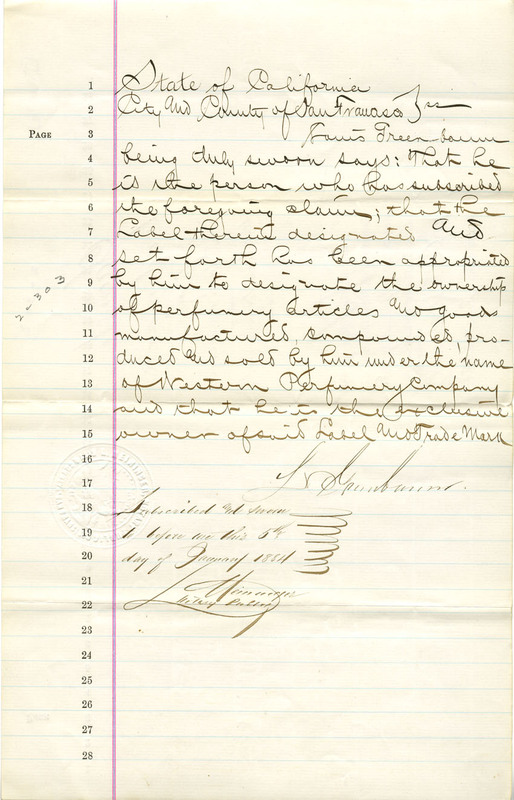 1 State of California
2 City and County of San Francisco } ss
PAGE 3 Louis Greenbaum
4 being duly sworn says: That he
5 is the person who has subscribed
6 the foregoing claim; that the
7 Label therein designated and
8 set forth has been appropriated
9 by him to designate the ownership
10 of perfumery articles and goods
11 manufactured, compounded, pro-
12 duced and sold by him under the name
13 of Western Perfumery Company
14 and that he is the exclusive
15 owner of said Label and Trade Mark
16
17 L Greenbaum.
18 Subscribed and sworn
19 to before me this 5th
20 day of January 1884
21
22 Notary Public
23
24
25
26
27
28
2-303